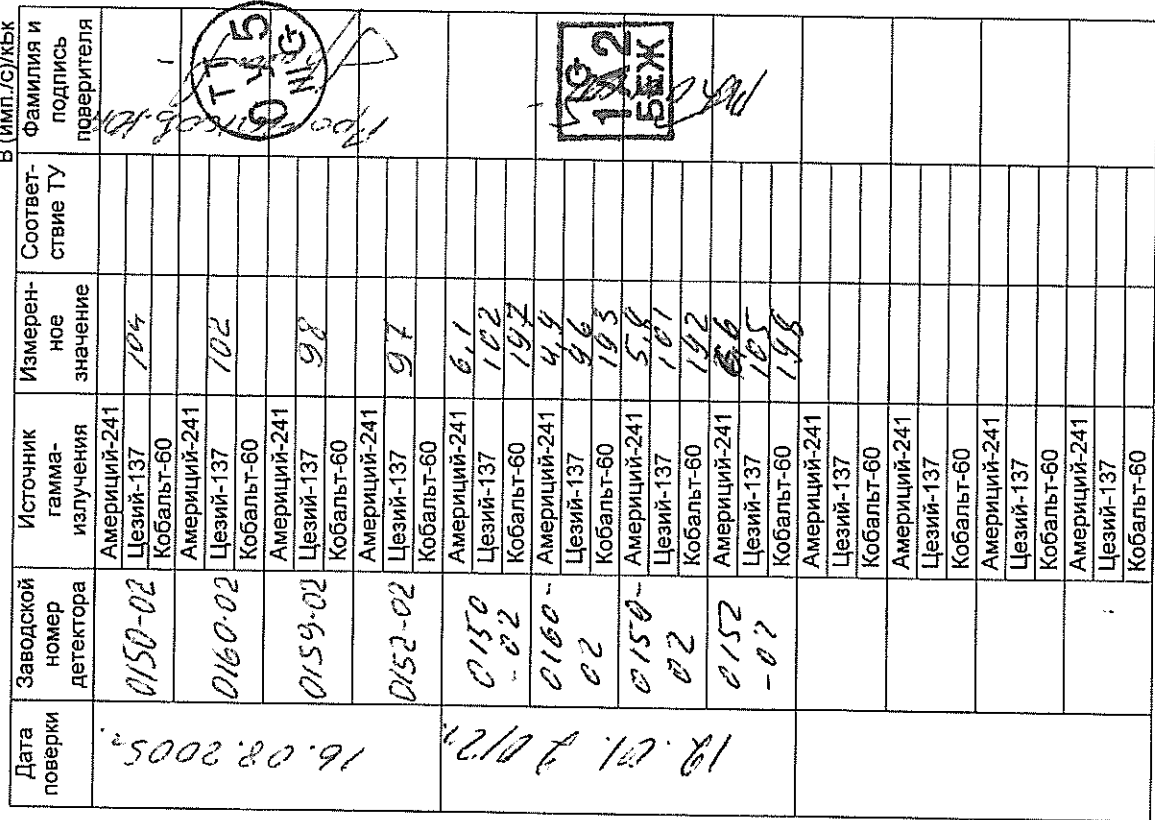 в (имп./с)/кБк
Дата поверки
Заводской номер детектора
Источник гамма-излучения
Измерен-ное значение
Соответ-ствие ТУ
Фамилия и подпись поверителя
16.08.2005г.
0150-02
Америций-241
Цезий-137 104
Кобальт-60
0160-02
Америций-241
Цезий-137 102
Кобальт-60
0159-02
Америций-241
Цезий-137 98
Кобальт-60
0152-02
Америций-241
Цезий-137 97
Кобальт-60
19.01.2012г.
0150-02
Америций-241 6,1
Цезий-137 102
Кобальт-60 197
0160-02
Америций-241 4,9
Цезий-137 96
Кобальт-60 193
0150-02
Америций-241 5,8
Цезий-137 101
Кобальт-60 192
0152-02
Америций-241
Цезий-137 105
Кобальт-60 198
Америций-241
Цезий-137
Кобальт-60
Америций-241
Цезий-137
Кобальт-60
Америций-241
Цезий-137
Кобальт-60
Америций-241
Цезий-137
Кобальт-60
ТТ
О У 5
NG
NG
1А2
5ЕЖ